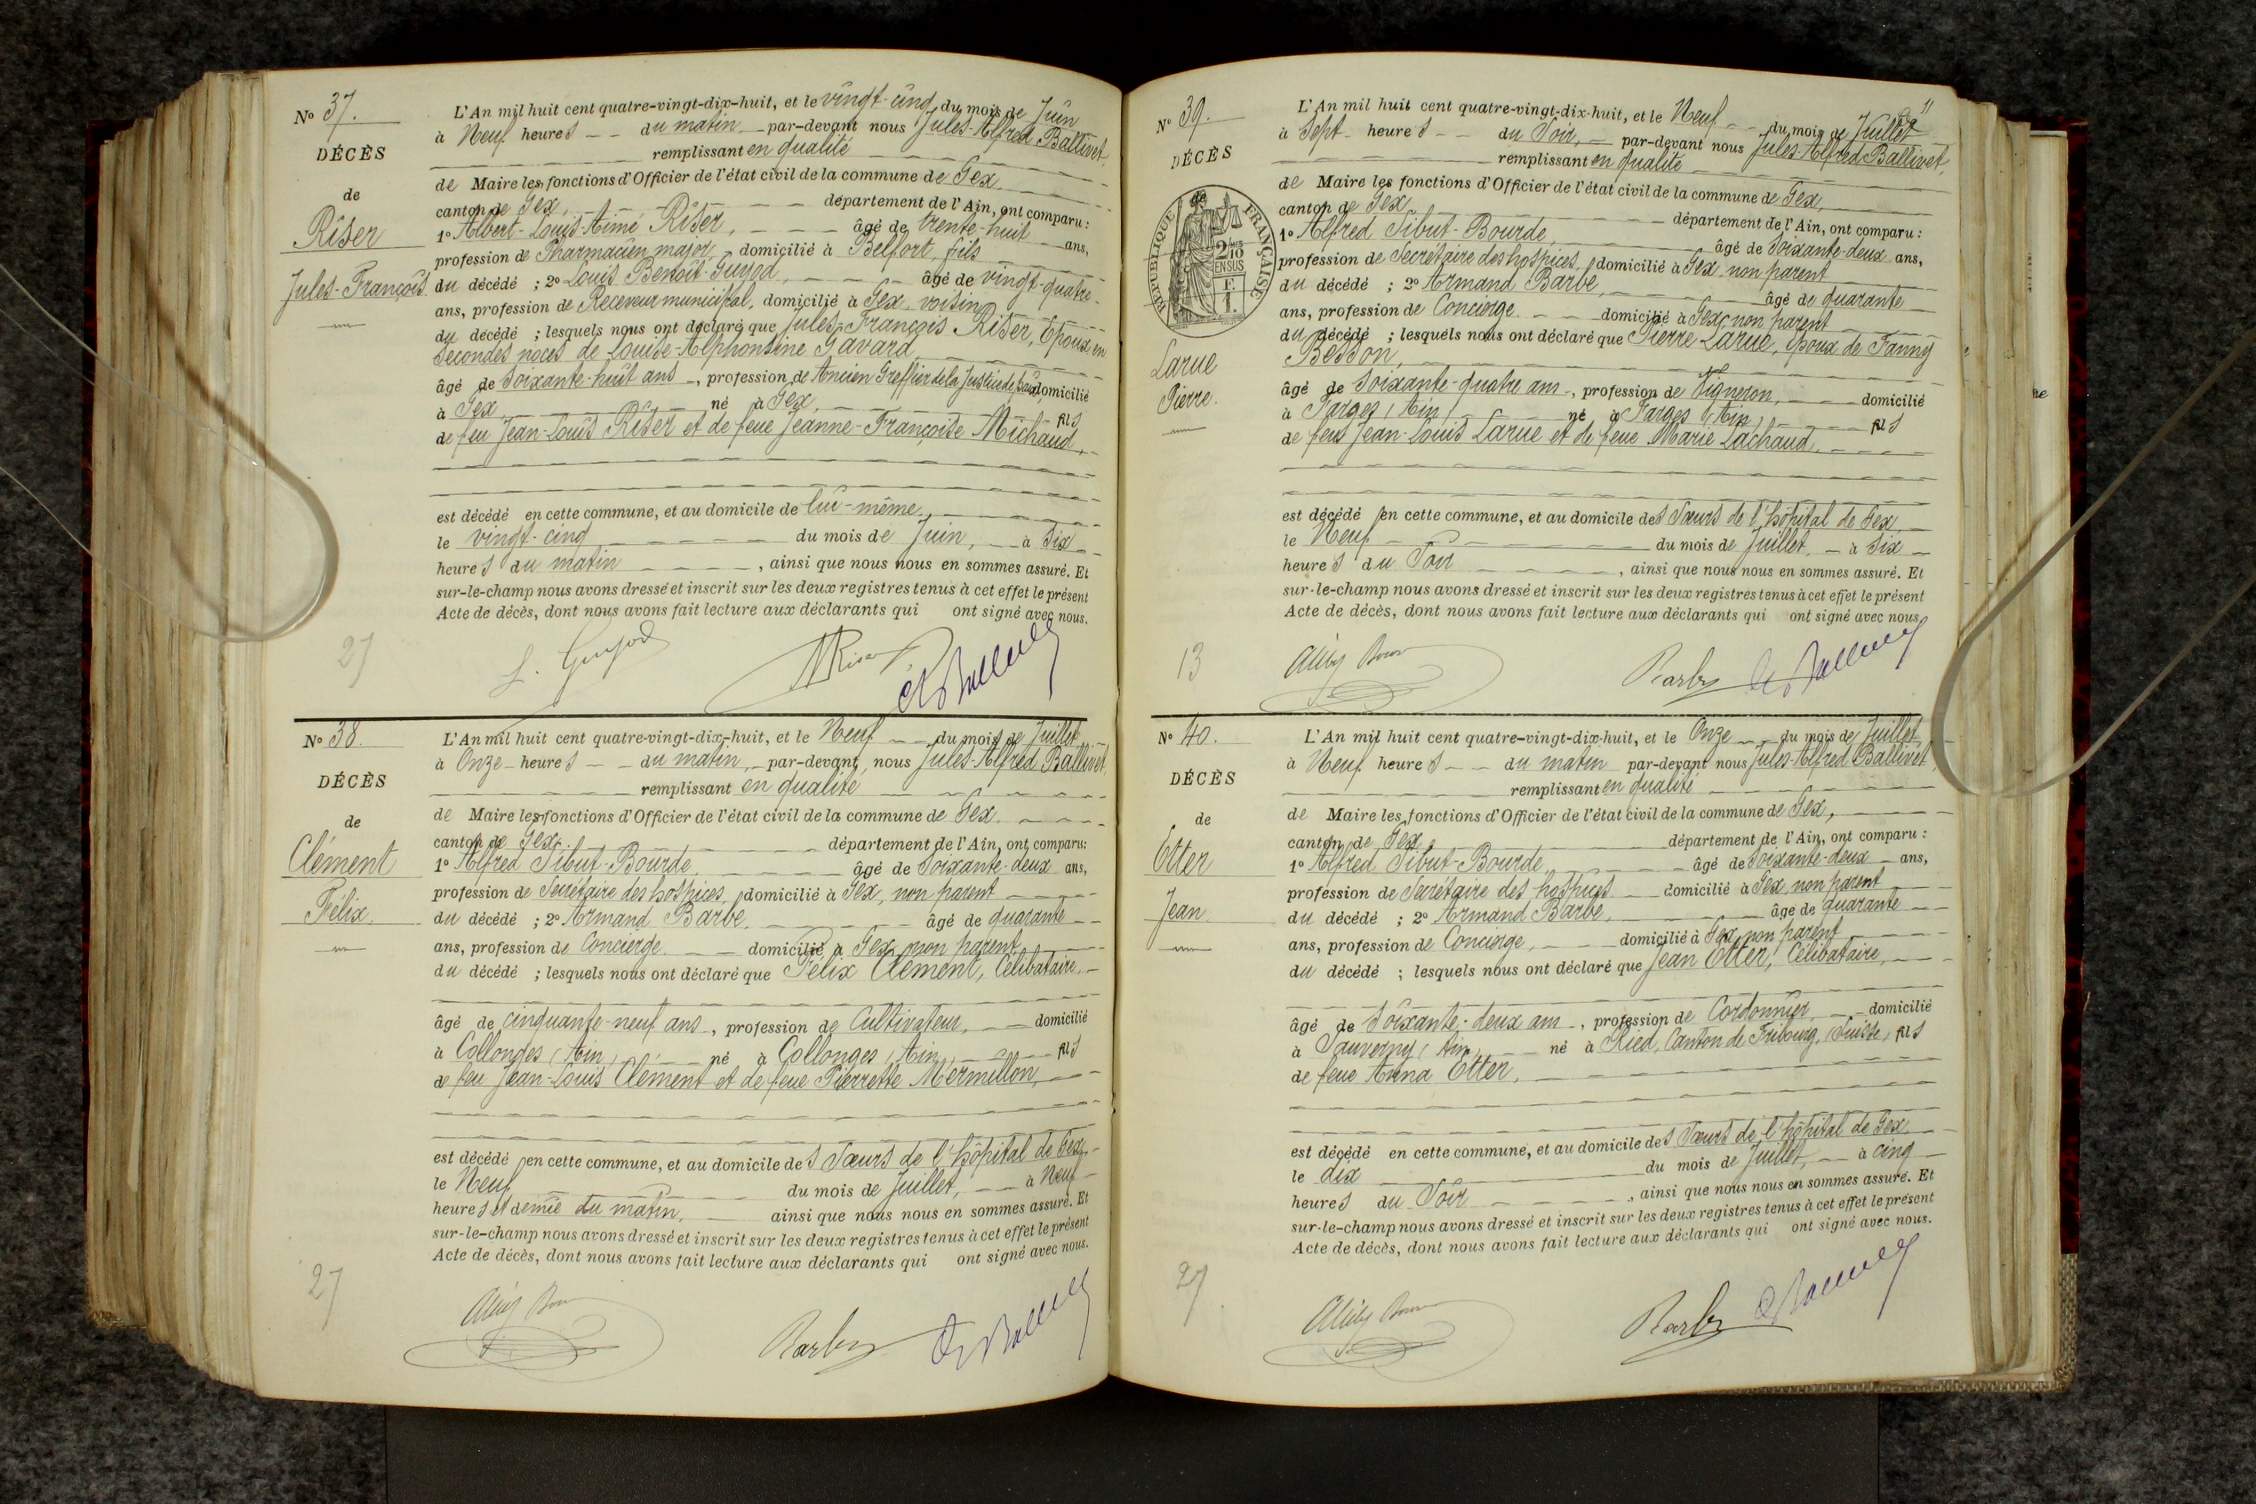 Nº 37.
DÉCÈS
de
Riser
Jules-François
L'An mil huit cent quatre-vingt-dix-huit, et le vingt-cinq du mois de Juin
à Neuf heures du matin par-devant nous Jules-Alfred Ballivet,
remplissant en qualité
de Maire les fonctions d'Officier de l'état civil de la commune de Gex
canton de Gex, département de l'Ain, ont comparu :
1º Albert-Louis-Aimé Riser, âgé de trente-huit ans,
profession de Pharmacien major, domicilié à Belfort, fils
du décédé ; 2º Louis Benoît-Guyod, âgé de vingt-quatre
ans, profession de Receveur municipal, domicilié à Gex, voisin
du décédé ; lesquels nous ont déclaré que Jules-François Riser, Epoux en
secondes noces de Louise-Alphonsine Gavard,
âgé de soixante-huit ans, profession de Ancien Greffier de la Justice de paix, domicilié
à Gex né à Gex, fils
de feu Jean-Louis Riser et de feue Jeanne-Françoise Michaud,
est décédé en cette commune, et au domicile de lui-même,
le vingt-cinq du mois de Juin, à six
heures du matin, ainsi que nous nous en sommes assuré. Et
sur-le-champ nous avons dressé et inscrit sur les deux registres tenus à cet effet le présent
Acte de décès, dont nous avons fait lecture aux déclarants qui ont signé avec nous.
27
L. Guyod
ARiser
Nº 38.
DÉCÈS
de
Clément
Félix.
L'An mil huit cent quatre-vingt-dix-huit, et le Neuf du mois de Juillet
à Onze heures du matin, par-devant nous Jules-Alfred Ballivet,
remplissant en qualité
de Maire les fonctions d'Officier de l'état civil de la commune de Gex
canton de Gex. département de l'Ain, ont comparu:
1º Alfred Sibut-Bourde, âgé de soixante-deux ans,
profession de Secrétaire des hospices, domicilié à Gex, non parent
du décédé ; 2º Armand Barbe, âgé de quarante
ans, profession de Concierge domicilié à Gex, non parent
du décédé ; lesquels nous ont déclaré que Félix Clément, Célibataire,
âgé de cinquante-neuf ans, profession de Cultivateur, domicilié
à Collonges (Ain) né à Collonges (Ain) fils
de feu Jean-Louis Clément et de feue Pierrette Mermillon,
est décédé en cette commune, et au domicile des Sœurs de l'hôpital de Gex,
le Neuf du mois de Juillet, à Neuf
heures et demie du matin, ainsi que nous nous en sommes assuré. Et
sur-le-champ nous avons dressé et inscrit sur les deux registres tenus à cet effet le présent
Acte de décès, dont nous avons fait lecture aux déclarants qui ont signé avec nous.
27
Barbe
Nº 39.
DÉCÈS
de
RÉPUBLIQUE FRANÇAISE
2/10
EN SUS
F.
1.
Larue
Pierre.
11
L'An mil huit cent quatre-vingt-dix-huit, et le Neuf du mois de Juillet
à Sept heures du Soir, par-devant nous Jules-Alfred Ballivet,
remplissant en qualité
de Maire les fonctions d'Officier de l'état civil de la commune de Gex,
canton de Gex, département de l'Ain, ont comparu :
1º Alfred Sibut-Bourde, âgé de soixante-deux ans,
profession de Secrétaire des hospices, domicilié à Gex, non parent
du décédé ; 2º Armand Barbe, âgé de quarante
ans, profession de Concierge domicilié à Gex, non parent
du décédé ; lesquels nous ont déclaré que Pierre Larue, époux de Fanny
Besson,
âgé de soixante-quatre ans, profession de Vigneron, domicilié
à Farges (Ain) né à Farges (Ain) fils
de feu Jean-Louis Larue et de feue Marie Lachaud,
est décédé en cette commune, et au domicile des Sœurs de l'hôpital de Gex
le Neuf du mois de Juillet, à Six
heures du Soir, ainsi que nous nous en sommes assuré. Et
sur-le-champ nous avons dressé et inscrit sur les deux registres tenus à cet effet le présent
Acte de décès, dont nous avons fait lecture aux déclarants qui ont signé avec nous.
13
Barbe
Nº 40.
DÉCÈS
de
Etter
Jean.
L'An mil huit cent quatre-vingt-dix-huit, et le Onze du mois de Juillet
à Neuf heures du matin par-devant nous Jules-Alfred Ballivet,
remplissant en qualité
de Maire les fonctions d'Officier de l'état civil de la commune de Gex,
canton de Gex, département de l'Ain, ont comparu :
1º Alfred Sibut-Bourde, âgé de soixante-deux ans,
profession de Secrétaire des hospices domicilié à Gex, non parent
du décédé ; 2º Armand Barbe, âgé de quarante
ans, profession de Concierge, domicilié à Gex, non parent
du décédé ; lesquels nous ont déclaré que Jean Etter, Célibataire,
âgé de Soixante-deux ans, profession de Cordonnier, domicilié
à Sauverny (Ain), né à Ried, Canton de Fribourg, (Suisse) fils
de feue Anna Etter,
est décédé en cette commune, et au domicile des Sœurs de l'hôpital de Gex
le dix du mois de Juillet, à cinq
heures du Soir, ainsi que nous nous en sommes assuré. Et
sur-le-champ nous avons dressé et inscrit sur les deux registres tenus à cet effet le présent
Acte de décès, dont nous avons fait lecture aux déclarants qui ont signé avec nous.
27
Barbe